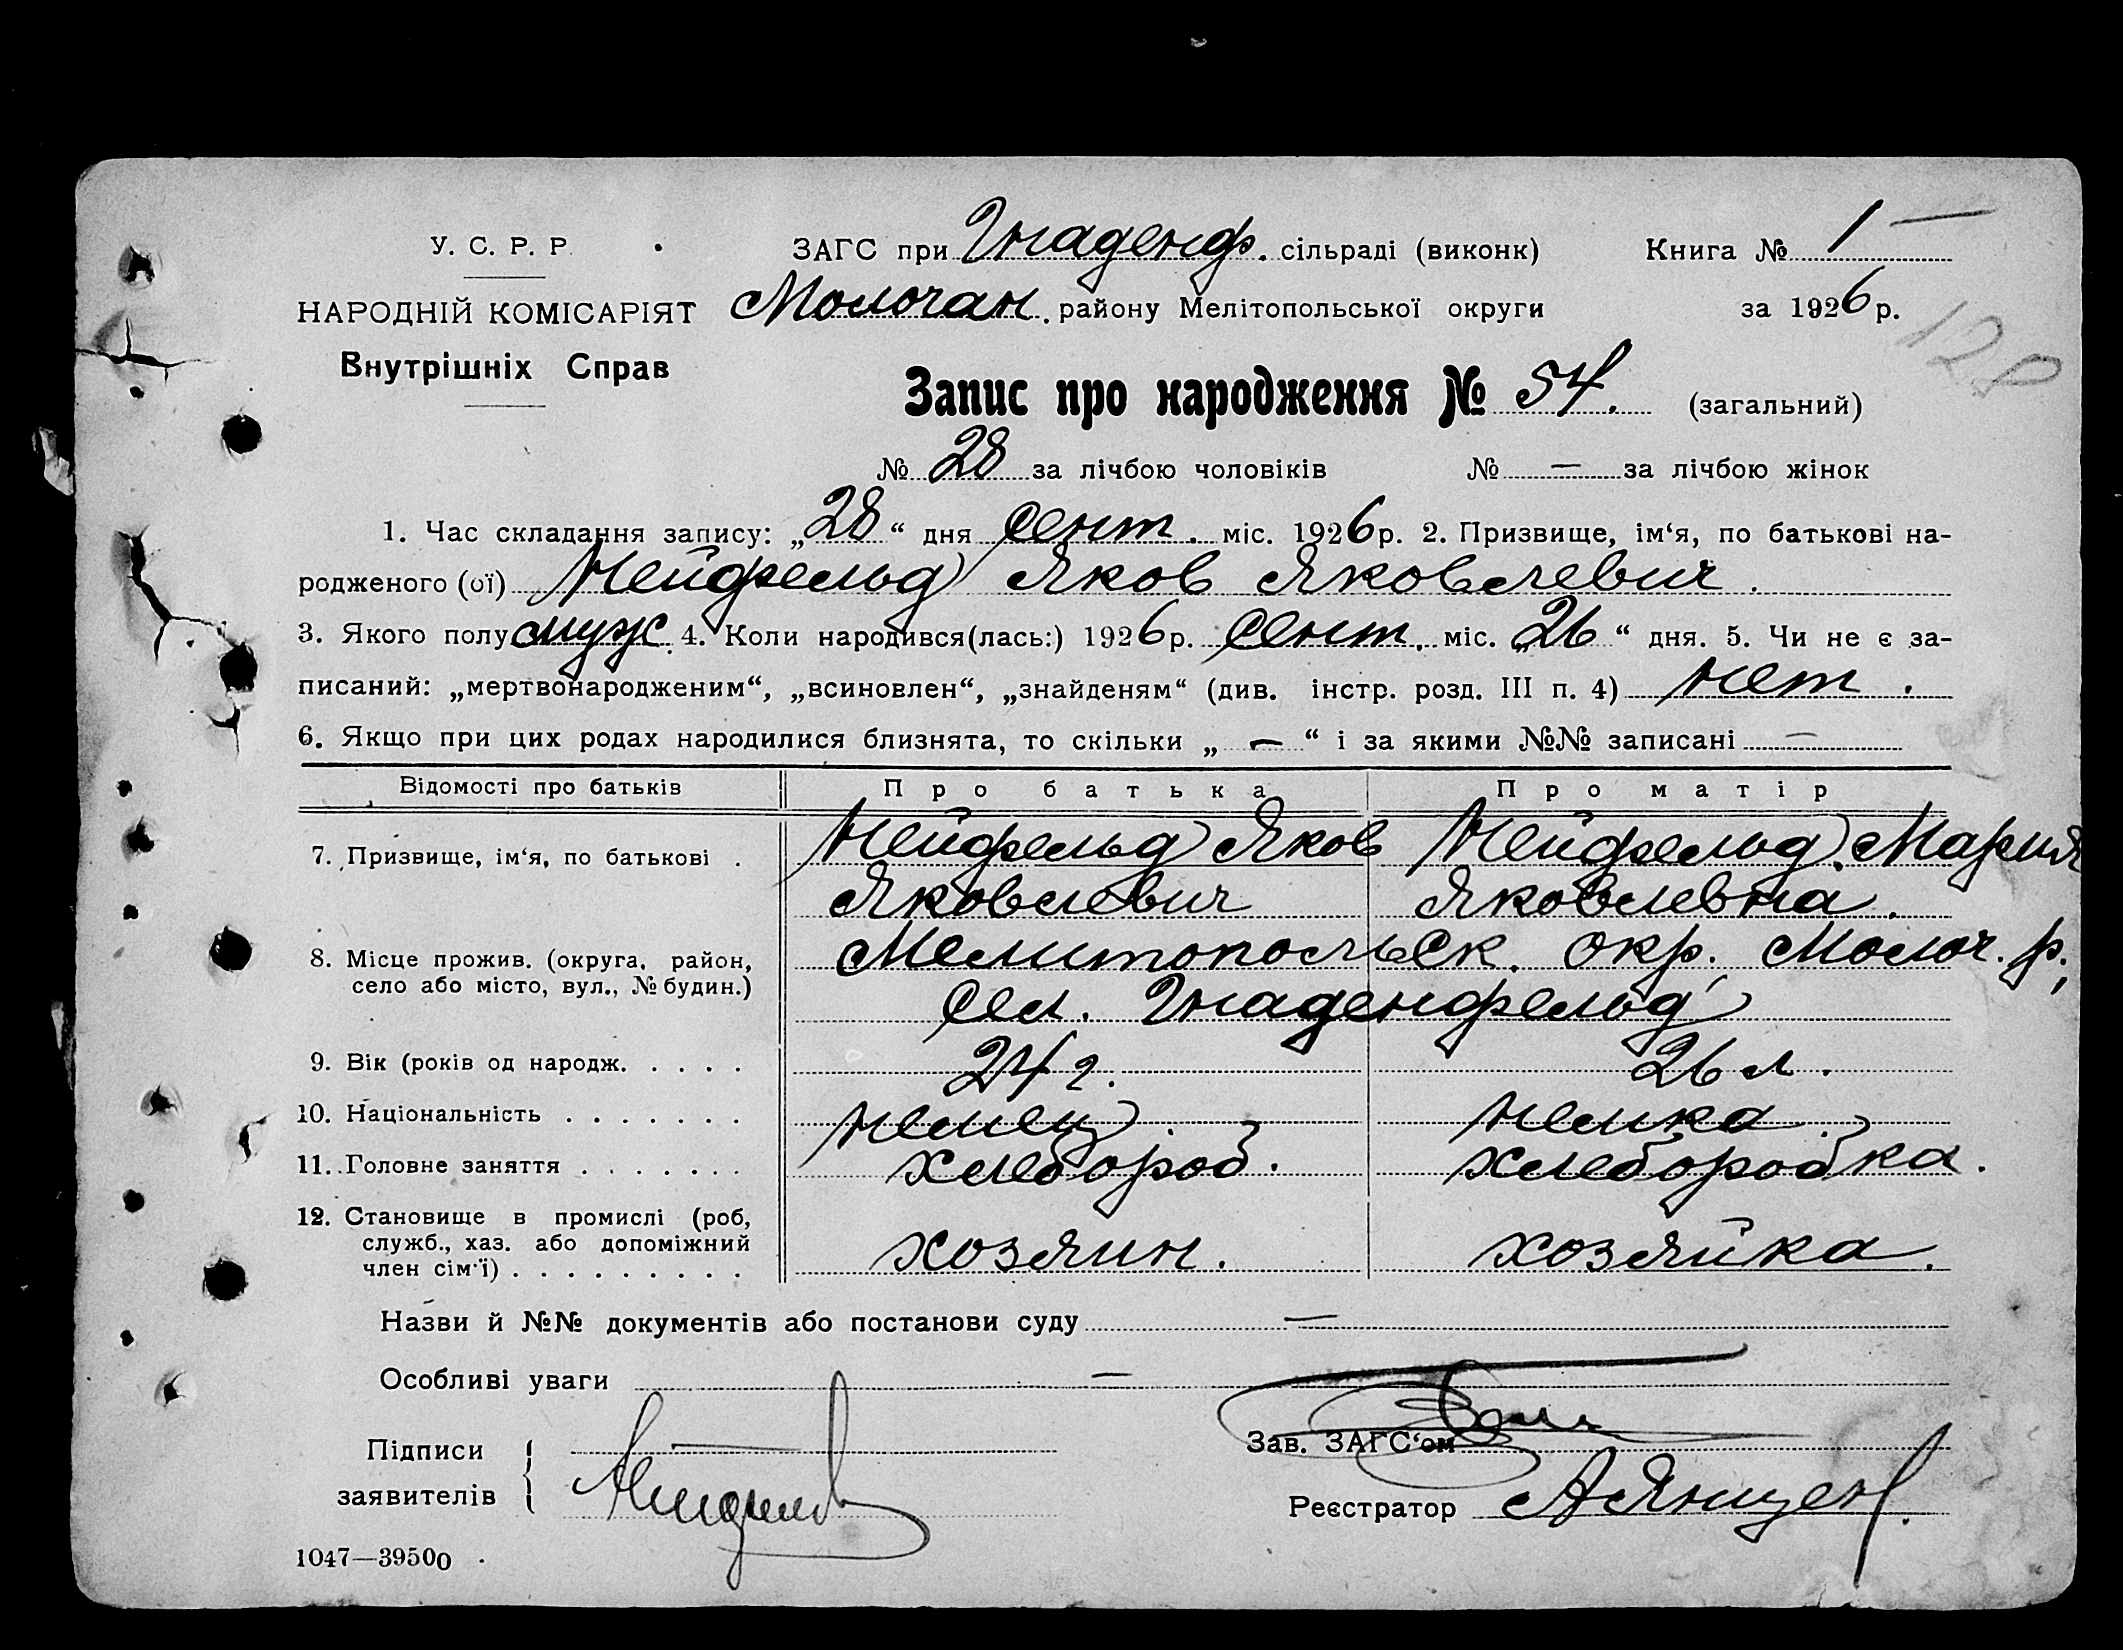 У. С. Р. Р.
НАРОДНІЙ КОМІСАРІЯТ
Внутрішніх Справ
ЗАГС при Гнаденф. сільраді (виконк)
Молочан. району Мелітопольської округи
Книга № 1
за 1926 р.
128
Запис про народження № 54. (загальний)
№ 28 за лічбою чоловіків № — за лічбою жінок
1. Час складання запису: „28“ дня сент. міс. 1926 р. 2. Призвище, ім‘я, по батькові на-
родженого (ої) Нейфельд Яков Яковлевич.
3. Якого полу муж. 4. Коли народився(лась:) 1926 р. сент. міс. „26“ дня. 5. Чи не є за-
писаний: „мертвонародженим“, „всиновлен“, „знайденям“ (див. інстр. розд. III п. 4) нет.
6. Якщо при цих родах народилися близнята, то скільки „ — “ і за якими №№ записані —
Відомості про батьків Про батька Про матір
7. Призвище, ім‘я, по батькові . Нейфельд Яков Нейфельд Мария
Яковлевич Яковлевна.
8. Місце прожив. (округа, район, Мелитопольск. окр. Молоч. р.,
село або місто, вул., № будин.) сел. Гнаденфельд
9. Вік (років од народж. . . . . 24 г. 26 л.
10. Національність . . . . . . . немец. немка.
11. Головне заняття . . . . . . . хлебороб. хлеборобка.
12. Становище в промислі (роб,
служб., хаз. або допоміжний
член сім‘ї) . . . . . . . . . хозяин. хозяйка.
Назви й №№ документів або постанови суду —
Особливі уваги —
Підписи
заявителів
Зав. ЗАГС‘ом
Реєстратор
1047—39500